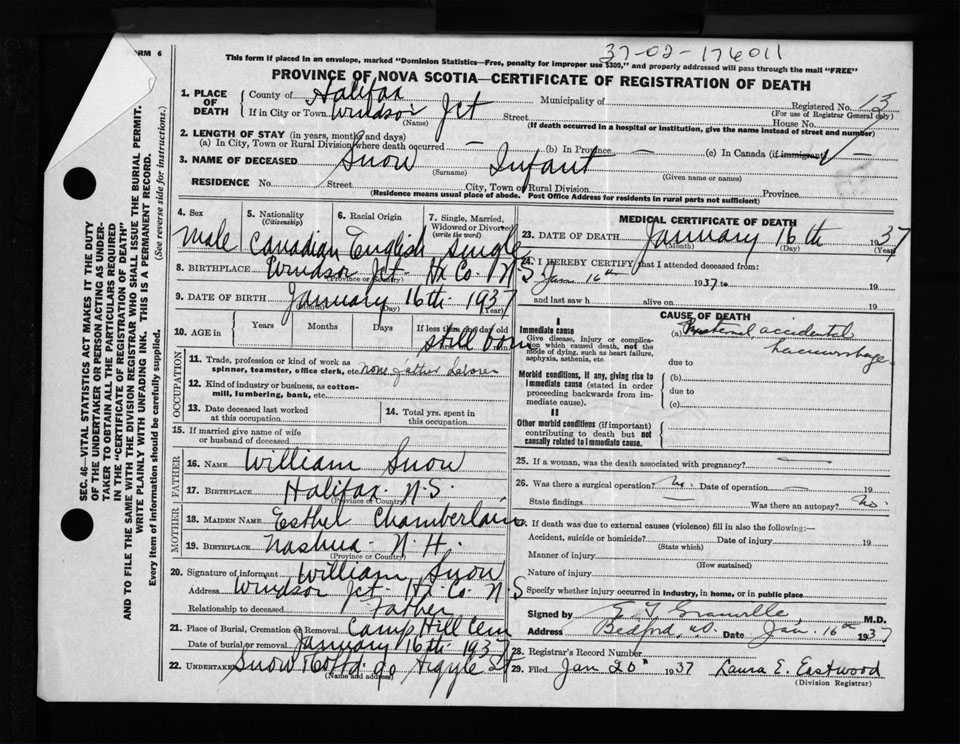 37-02-176011
FORM 6
This form if placed in an envelope, marked "Dominion Statistics—Free, penalty for improper use $300," and properly addressed will pass through the mail "FREE"
PROVINCE OF NOVA SCOTIA—CERTIFICATE OF REGISTRATION OF DEATH
1. PLACE OF DEATH County of Halifax Municipality of Registered No. 13
(For use of Registrar General only)
If in City or Town Windsor Jct Street House No.
(Name) (If death occurred in a hospital or institution, give the name instead of street and number)
2. LENGTH OF STAY (in years, months and days)
(a) In City, Town or Rural Division where death occurred — (b) In Province — (c) In Canada (if immigrant) —
3. NAME OF DECEASED Snow Infant
(Surname) (Given name or names)
RESIDENCE No. Street City, Town or Rural Division Province
(Residence means usual place of abode. Post Office Address for residents in rural parts not sufficient)
4. Sex 5. Nationality 6. Racial Origin 7. Single, Married,
(Citizenship) Widowed or Divorced
(write the word)
Male Canadian English Single
8. BIRTHPLACE Windsor Jct. Hx Co. N S
(Province or Country)
9. DATE OF BIRTH January 16th 1937
(Month) (Day) (Year)
10. AGE in Years Months Days If less than one day old
still born
OCCUPATION
11. Trade, profession or kind of work as
spinner, teamster, office clerk, etc. none father Laborer
12. Kind of industry or business, as cotton-
mill, lumbering, bank, etc.
13. Date deceased last worked
at this occupation
14. Total yrs. spent in
this occupation
15. If married give name of wife
or husband of deceased
FATHER
16. NAME William Snow
17. BIRTHPLACE Halifax N.S.
(Province or Country)
MOTHER
18. MAIDEN NAME Esthel Chamberlain
19. BIRTHPLACE Nashua N.H.
(Province or Country)
20. Signature of informant William Snow
Address Windsor Jct. Hx Co. N S
Relationship to deceased Father
21. Place of Burial, Cremation or Removal Camp Hill Cem
Date of burial or removal January 16th 1937
22. UNDERTAKER Snow & Co Ltd. 90 Argyle St
(Name and address)
MEDICAL CERTIFICATE OF DEATH
23. DATE OF DEATH January 16th 1937
(Month) (Day) (Year)
24. I HEREBY CERTIFY that I attended deceased from:
Jan 16th 1937 to 19
and last saw h alive on 19
CAUSE OF DEATH
I
Immediate cause
Give disease, injury or complica-
tion which caused death, not the
mode of dying, such as heart failure,
asphyxia, asthenia, etc.
(a) accidental
haemorrhage
due to
Morbid conditions, if any, giving rise to
immediate cause (stated in order
proceeding backwards from im-
mediate cause).
(b)
due to
(c)
II
Other morbid conditions (if important)
contributing to death but not
causally related to immediate cause.
25. If a woman, was the death associated with pregnancy —
26. Was there a surgical operation? No. Date of operation — 19
State findings — Was there an autopsy? No
27. If death was due to external causes (violence) fill in also the following:—
Accident, suicide or homicide? Date of injury 19
(State which)
Manner of injury
(How sustained)
Nature of injury
Specify whether injury occurred in industry, in home, or in public place
Signed by E T Granville M.D.
Address Bedford, Date Jan. 16th 1937
28. Registrar's Record Number
29. Filed Jan 20 1937 Laura E. Eastwood
(Division Registrar)
SEC. 46—VITAL STATISTICS ACT MAKES IT THE DUTY
OF THE UNDERTAKER OR PERSON ACTING AS UNDER-
TAKER TO OBTAIN ALL THE PARTICULARS REQUIRED
IN THE "CERTIFICATE OF REGISTRATION OF DEATH"
AND TO FILE THE SAME WITH THE DIVISION REGISTRAR WHO SHALL ISSUE THE BURIAL PERMIT.
WRITE PLAINLY WITH UNFADING INK. THIS IS A PERMANENT RECORD.
Every item of information should be carefully supplied. (See reverse side for instructions.)